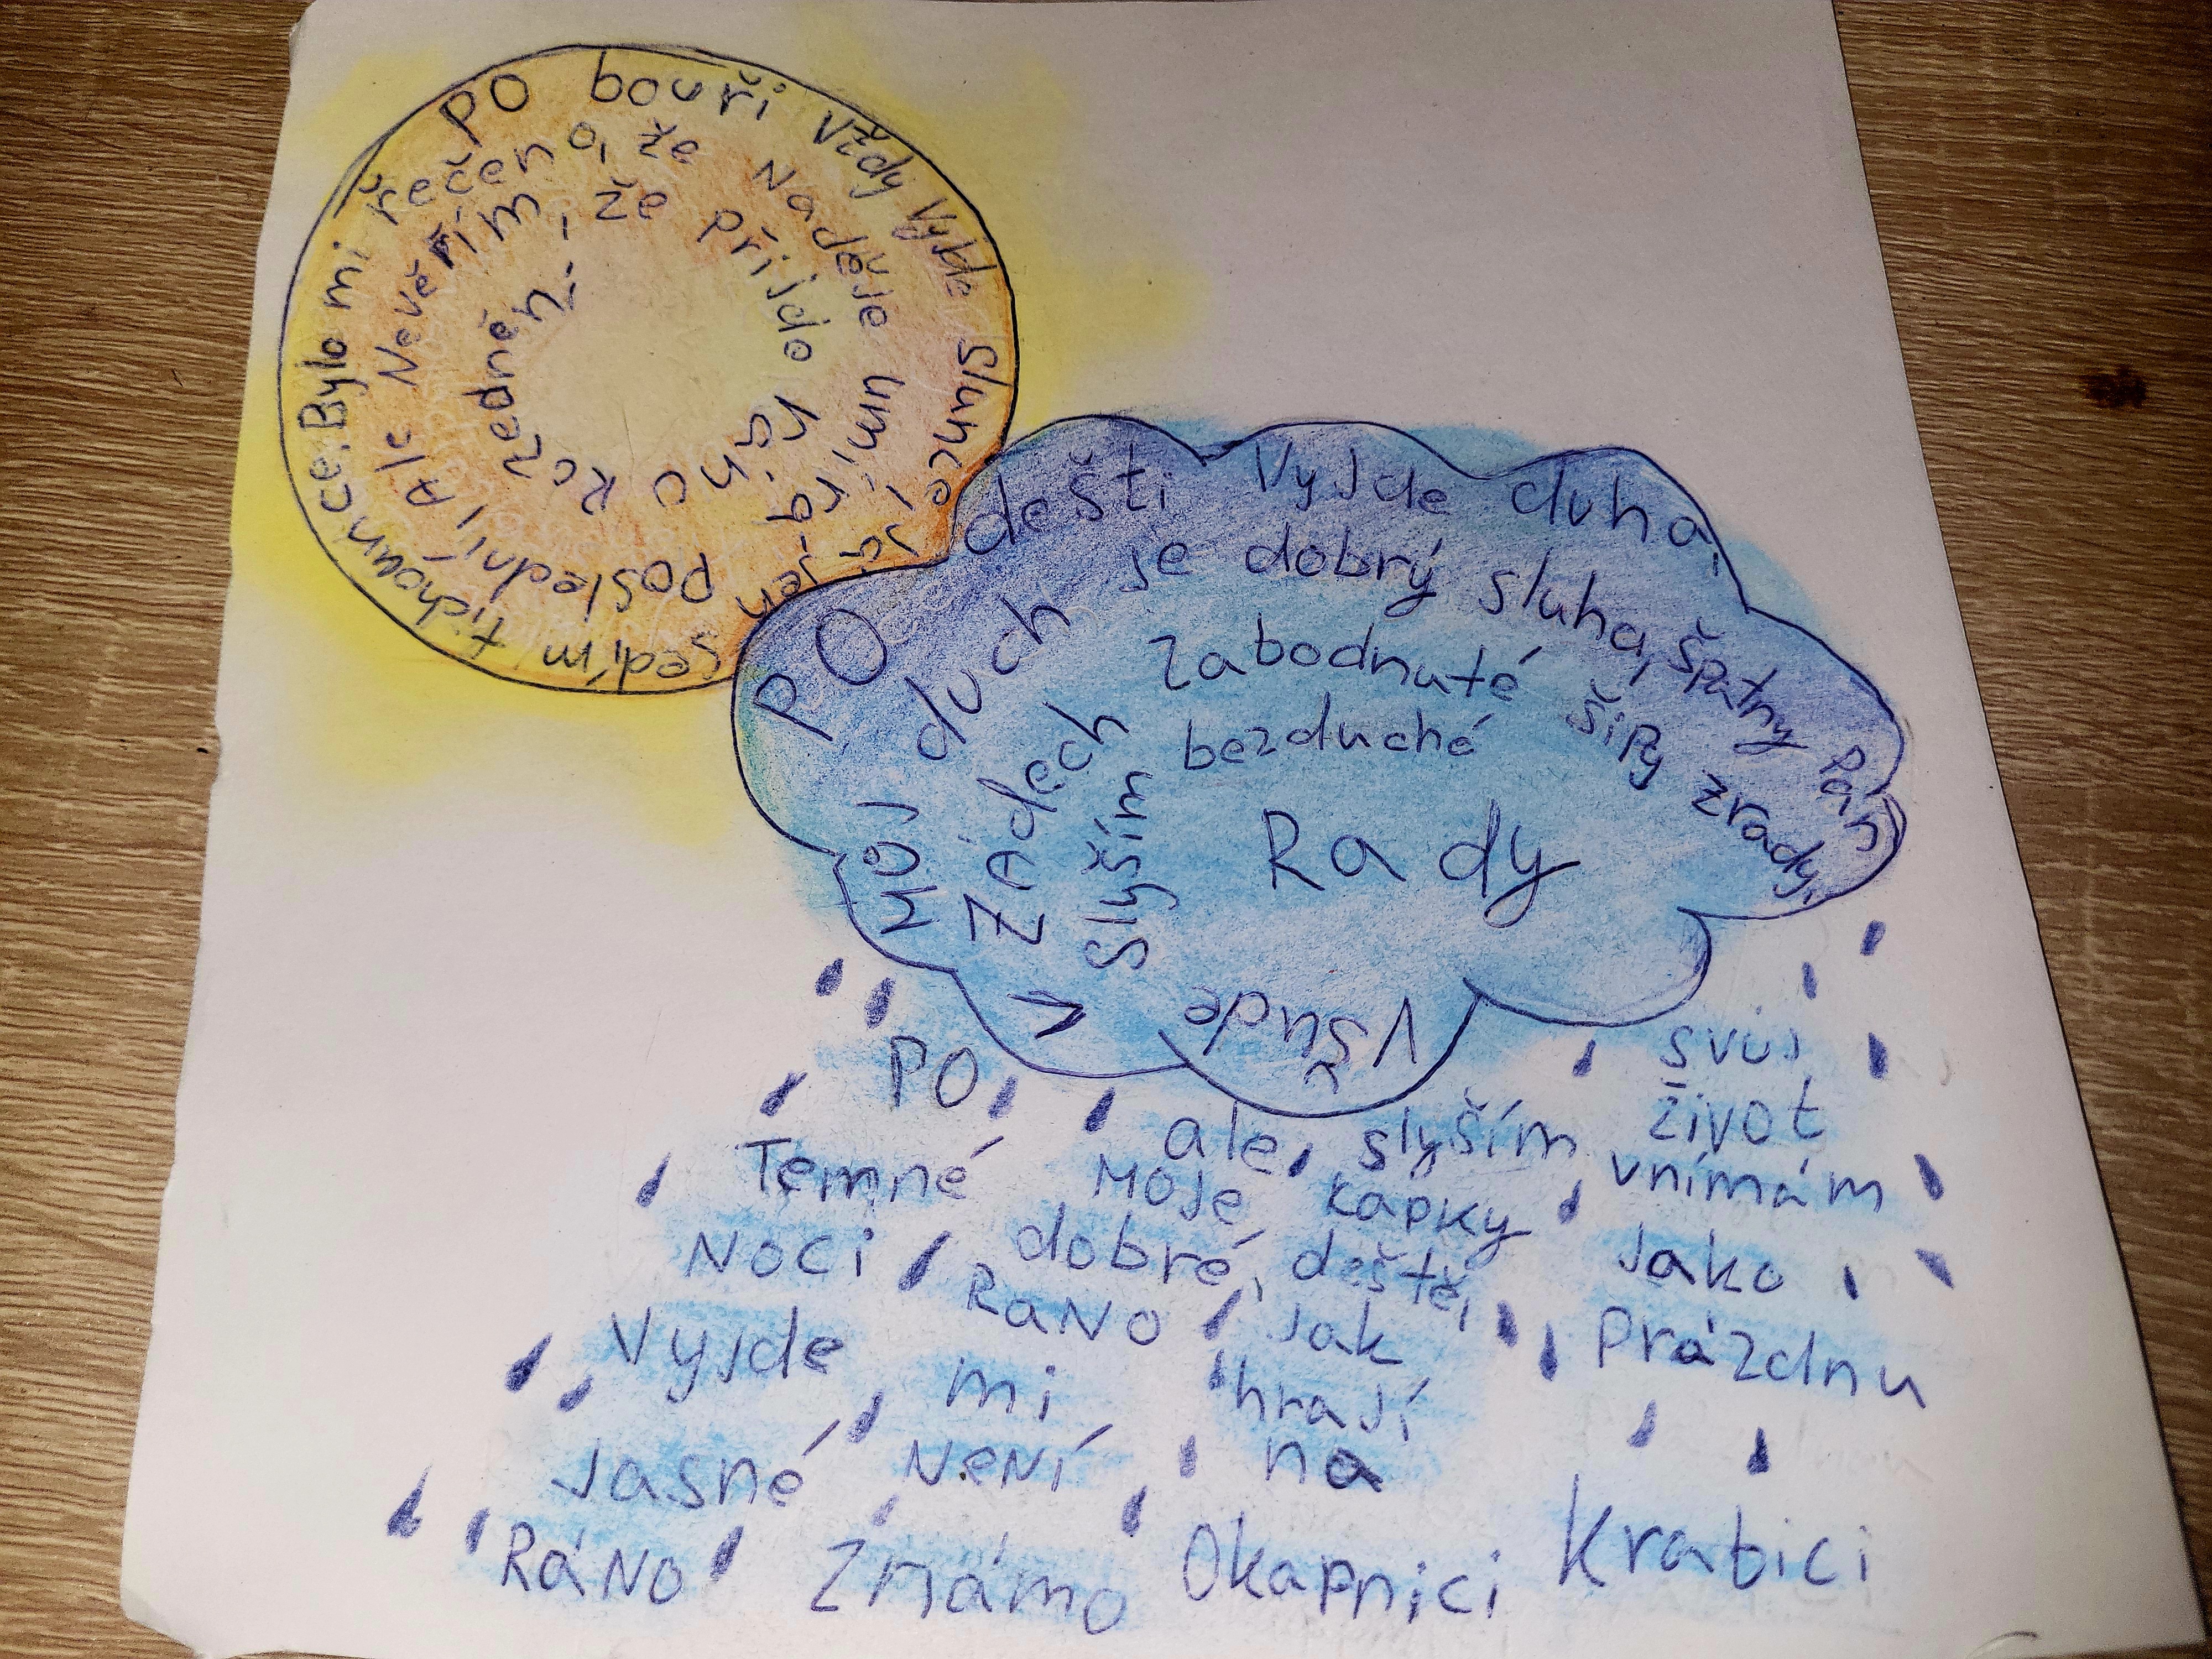 PO bouři vždy vyjde slunce, já jen
sedím tichounce. Bylo mi řečeno, že Naděje umírá
poslední, Ale Nevěřím, že přijde
Rozednění.
PO dešti vyjde duha,
Můj duch je dobrý sluha, špatný pán
V Zádech Zabodnuté šípy zrady,
Všude slyším bezduché
Rady
PO
Temné
Noci
Vyjde
Jasné
RáNo
ale
Moje
dobré,
RaNo
mi
NeNí
Známo
slyším
kapky
deště,
Jak
hrají
na
Okapnici
svůj
život
vnímám
Jako
Prázdnu
Krabici